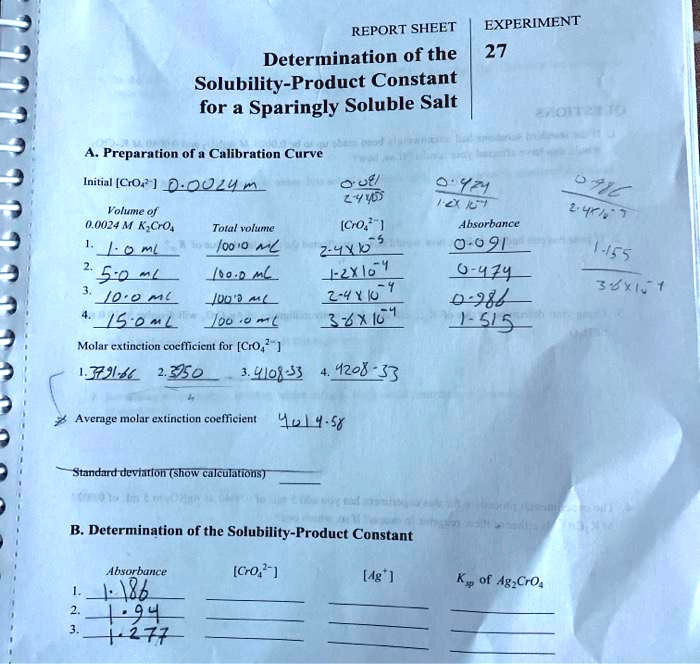 REPORT SHEET
EXPERIMENT
Determination of the
27
Solubility-Product Constant
for a Sparingly Soluble Salt
A. Preparation of a Calibration Curve
Initial [CrO₄²⁻] 0.0024 m
0.091
0.474
0.986
2.4x10⁻⁵
1.2x10⁻⁴
2.4x10⁻⁴
Volume of
0.0024 M K₂CrO₄
Total volume
[CrO₄²⁻]
Absorbance
1. 1.0 mL 100.0 mL 2.4x10⁻⁵ 0.091
2. 5.0 mL 100.0 mL 1.2x10⁻⁴ 0.474
3. 10.0 mL 100.0 mL 2.4x10⁻⁴ 0.986
4. 15.0 mL 100.0 mL 3.6x10⁻⁴ 1.515
1.155
3.6x10⁻⁴
Molar extinction coefficient for [CrO₄²⁻]
1. 3791.66 2. 3950 3. 4108.33 4. 4208.33
Average molar extinction coefficient 4014.58
Standard deviation (show calculations)
B. Determination of the Solubility-Product Constant
Absorbance
[CrO₄²⁻]
[Ag⁺]
Ksp of Ag₂CrO₄
1. 1.186
2. 1.94
3. 1.277